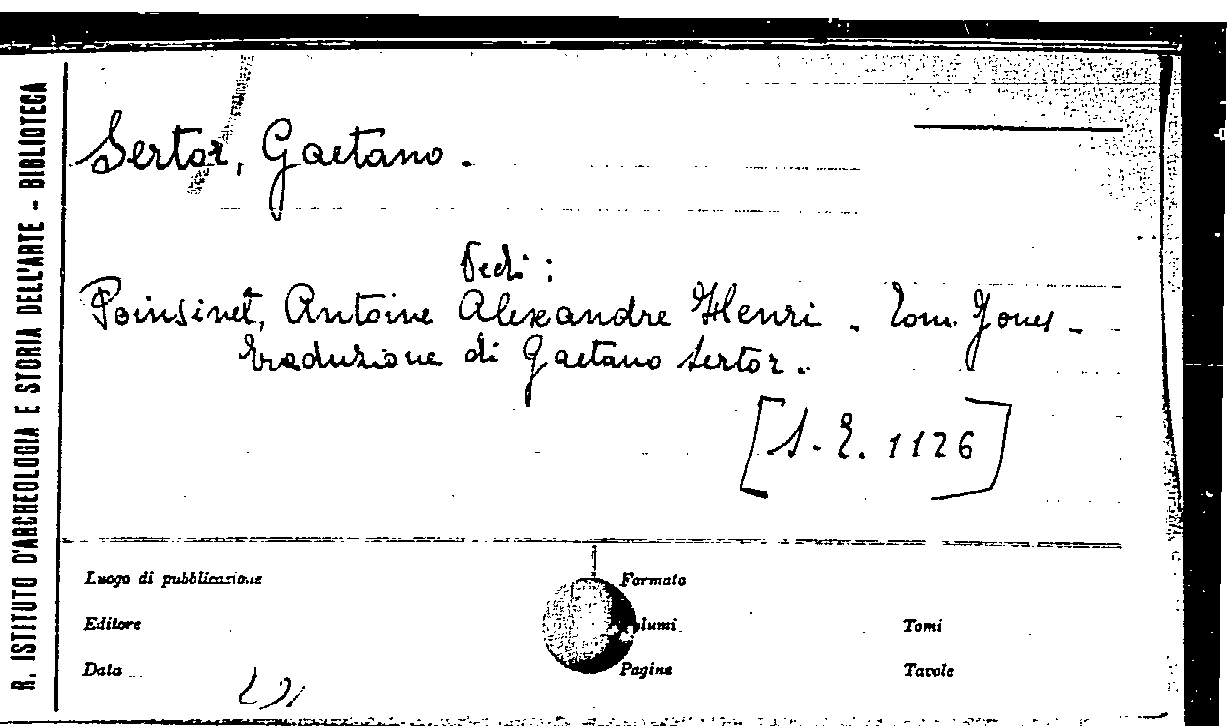 R. ISTITUTO D'ARCHEOLOGIA E STORIA DELL'ARTE - BIBLIOTECA
Sertor, Gaetano.
Vedi:
Poinsinet, Antoine Alexandre Henri - Tom Jones -
traduzione di Gaetano Sertor.
[S.E. 1126]
Luogo di pubblicazione
Formato
Editore
Volumi
Tomi
Data
Pagine
Tavole